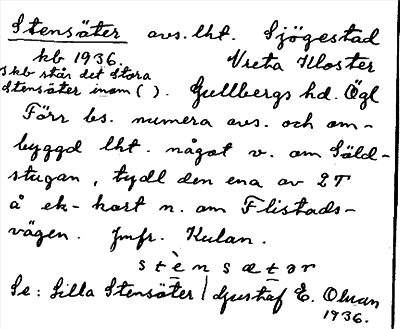 Stensäter avs. lht. Sjögestad
kb 1936. Vreta Kloster
Skb står det Stora
Stensäter inom ( ). Gullbergs hd. Ögl
Förr bs. numera avs. och om-
byggd lht. något v. om Säld-
stugan, tydl den ena av 2T
å ek-kart n. om Flistads-
vägen. Jmfr. Kulan.
stènsætər
Se: Lilla Stensäter / Gustaf E. Olman
1936.